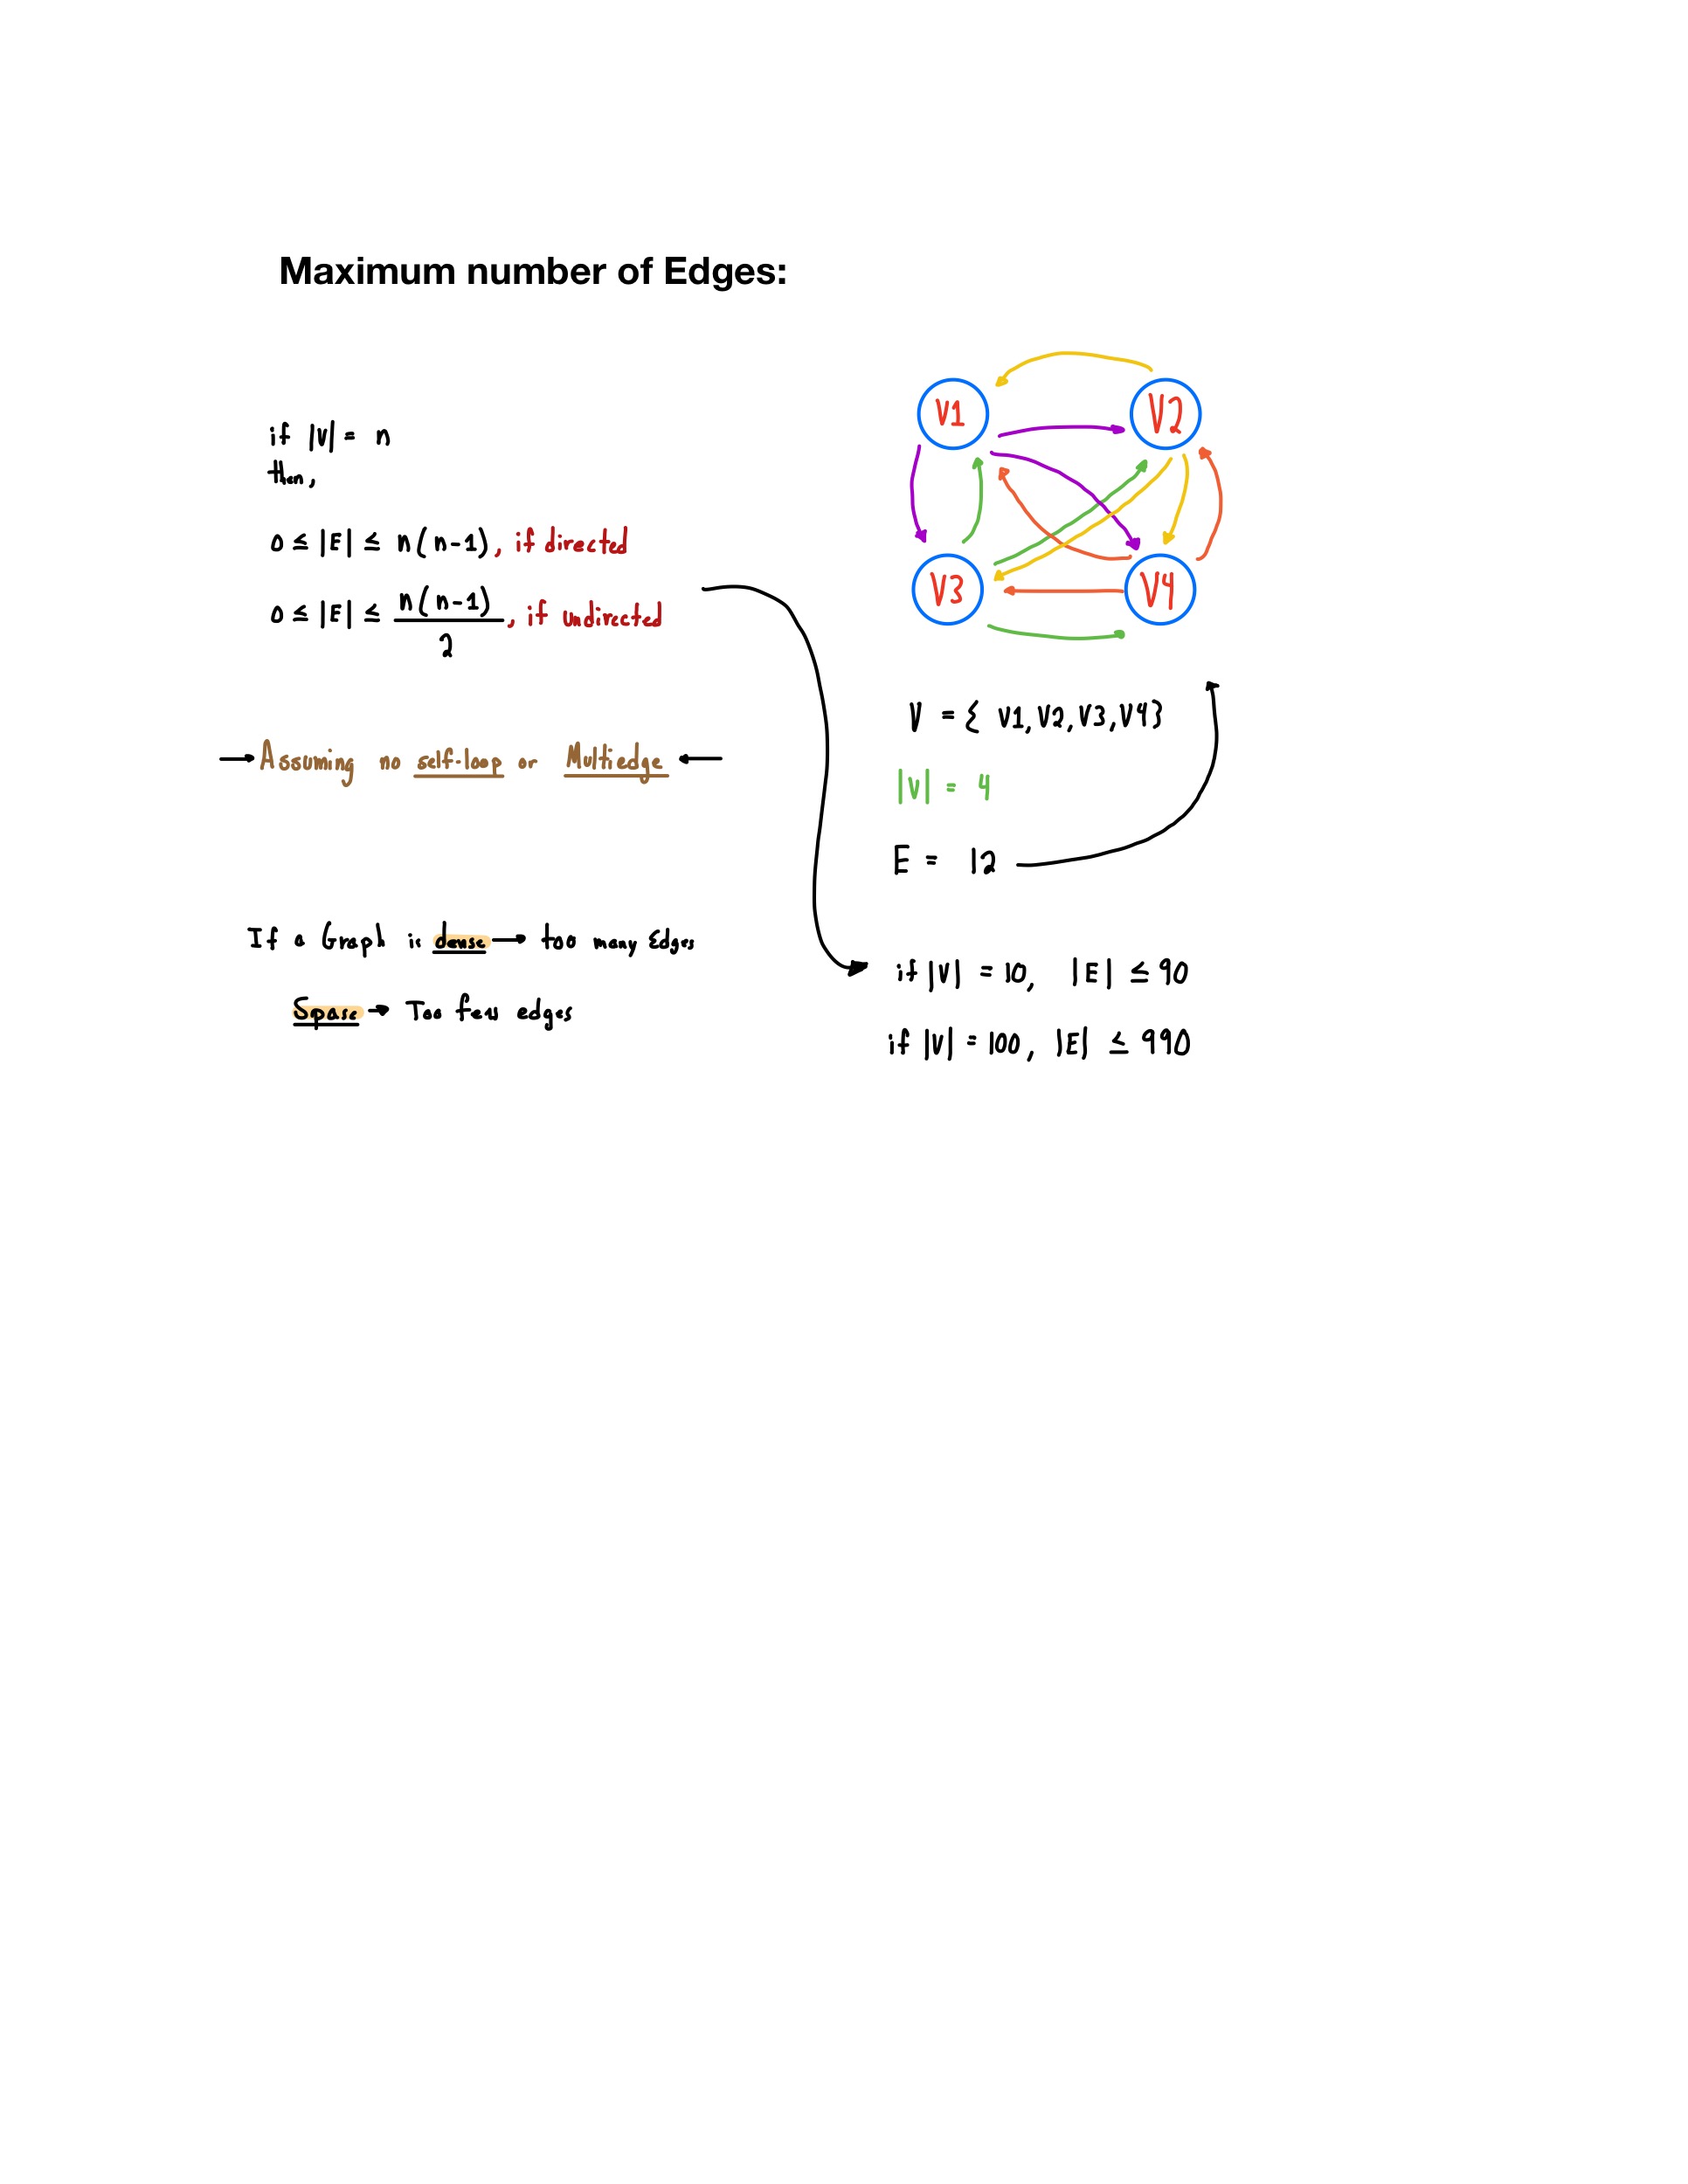 Maximum number of Edges:
if |V| = n
then,
0 ≤ |E| ≤ n(n-1), if directed
0 ≤ |E| ≤ n(n-1)/2, if undirected
→ Assuming no self-loop or Multiedge ←
If a Graph is dense → too many Edges
Spase → Too few edges
V1
V2
V3
V4
V = { V1, V2, V3, V4 }
|V| = 4
E = 12
if |V| = 10, |E| ≤ 90
if |V| = 100, |E| ≤ 990